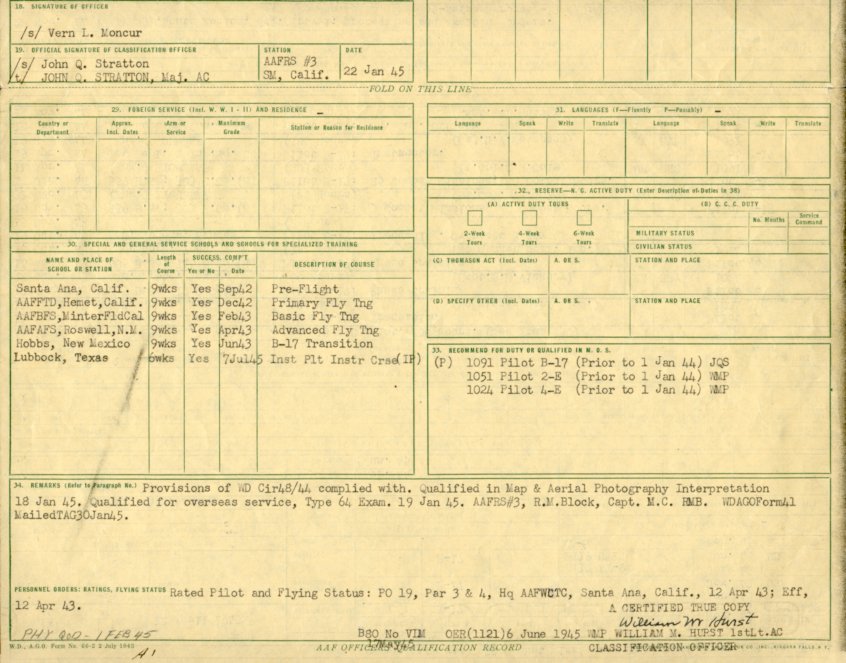 18. SIGNATURE OF OFFICER
/s/ Vern L. Moncur
19. OFFICIAL SIGNATURE OF CLASSIFICATION OFFICER
/s/ John Q. Stratton
/t/ JOHN Q. STRATTON, Maj. AC
STATION
AAFRS #3
SM, Calif.
DATE
22 Jan 45
FOLD ON THIS LINE
29. FOREIGN SERVICE (Incl. W. W. I - II) AND RESIDENCE
Country or Department
Approx. Incl. Dates
Arm or Service
Maximum Grade
Station or Reason for Residence
30. SPECIAL AND GENERAL SERVICE SCHOOLS AND SCHOOLS FOR SPECIALIZED TRAINING
NAME AND PLACE OF SCHOOL OR STATION
Length of Course
SUCCESS. COMP'T
Yes or No
Date
DESCRIPTION OF COURSE
Santa Ana, Calif. 9wks Yes Sep42 Pre-Flight
AAFFTD,Hemet,Calif. 9wks Yes Dec42 Primary Fly Tng
AAFBFS,MinterFldCal 9wks Yes Feb43 Basic Fly Tng
AAFAFS,Roswell,N.M. 9wks Yes Apr43 Advanced Fly Tng
Hobbs, New Mexico 9wks Yes Jun43 B-17 Transition
Lubbock, Texas 6wks Yes 7Jul45 Inst Plt Instr Crse(IP)
31. LANGUAGES (F—Fluently P—Passably)
Language Speak Write Translate Language Speak Write Translate
32. RESERVE—N. G. ACTIVE DUTY (Enter Description of Duties in 38)
(A) ACTIVE DUTY TOURS
2-Week Tours
4-Week Tours
6-Week Tours
(B) C. C. C. DUTY
No. Months
Service Command
MILITARY STATUS
CIVILIAN STATUS
(C) THOMASON ACT (Incl. Dates) A. OR S. STATION AND PLACE
(D) SPECIFY OTHER (Incl. Dates) A. OR S. STATION AND PLACE
33. RECOMMEND FOR DUTY OR QUALIFIED IN M. O. S.
(P) 1091 Pilot B-17 (Prior to 1 Jan 44) JQS
1051 Pilot 2-E (Prior to 1 Jan 44) WMP
1024 Pilot 4-E (Prior to 1 Jan 44) WMP
34. REMARKS (Refer to Paragraph No.) Provisions of WD Cir48/44 complied with. Qualified in Map & Aerial Photography Interpretation
18 Jan 45. Qualified for overseas service, Type 64 Exam. 19 Jan 45. AAFRS#3, R.M.Block, Capt. M.C. RMB. WDAGOForm41
MailedTAG30Jan45.
PERSONNEL ORDERS: RATINGS, FLYING STATUS Rated Pilot and Flying Status: PO 19, Par 3 & 4, Hq AAFWCTC, Santa Ana, Calif., 12 Apr 43; Eff,
12 Apr 43.
A CERTIFIED TRUE COPY
William M Hurst
PHY QOD - 1 FEB 45
BSO No VIM OER(1121)6 June 1945 WMP WILLIAM M. HURST 1stLt.AC
17May45
W.D., A.G.O. Form No. 66-2 2 July 1943
AAF OFFICERS' QUALIFICATION RECORD
CLASSIFICATION OFFICER
A1